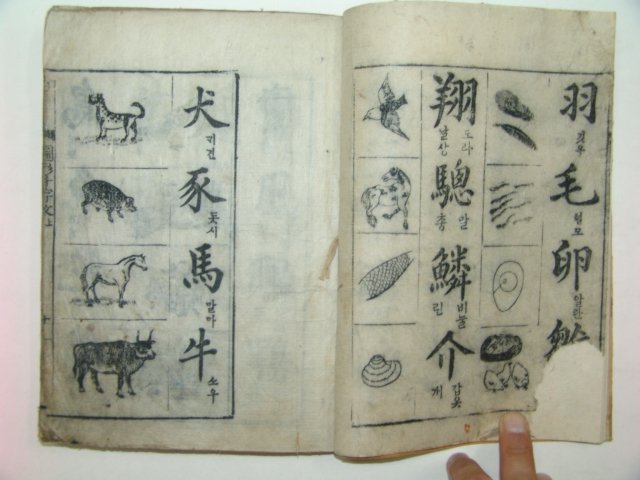 羽
깃우
毛
털모
卵
알란
翔
도라
날상
驄
말
총
鱗
비눌
린
介
갑옷
개
犬
개견
豕
돗시
馬
말마
牛
소우